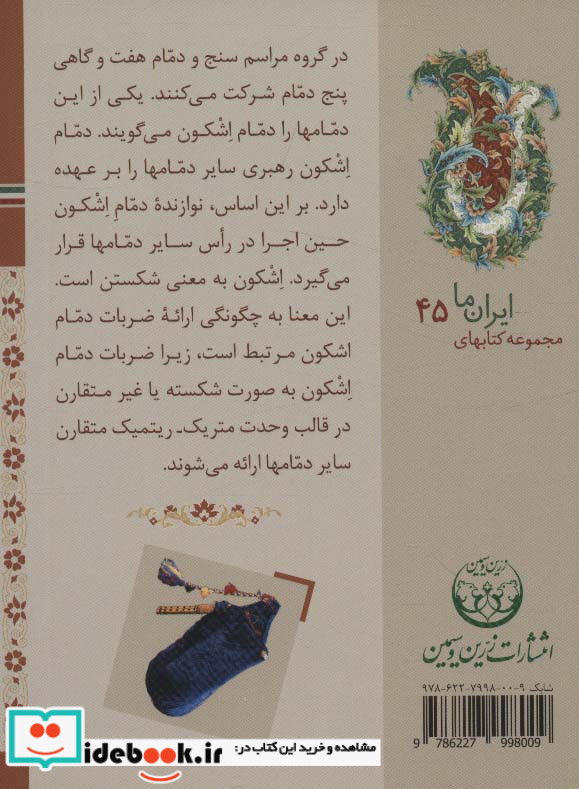 در گروه مراسم سنج و دمّام هفت و گاهی
پنج دمّام شرکت می‌کنند. یکی از این
دمّامها را دمّام اِشکون می‌گویند. دمّام
اِشکون رهبری سایر دمّامها را بر عهده
دارد. بر این اساس، نوازندهٔ دمّامِ اِشکون
حین اجرا در رأس سایر دمّامها قرار
می‌گیرد. اِشکون به معنی شکستن است.
این معنا به چگونگی ارائهٔ ضربات دمّام
اشکون مرتبط است، زیرا ضربات دمّام
اِشکون به صورت شکسته یا غیر متقارن
در قالب وحدت متریک- ریتمیک متقارن
سایر دمّامها ارائه می‌شوند.
ایران ما ۴۵
مجموعه کتابهای
زرین و سیمین
انتشارات زرّین و سیمین
شابک ۹-۰۰-۷۹۹۸-۶۲۲-۹۷۸
9 786227 998009
idebook.ir
مشاهده و خرید این کتاب در: